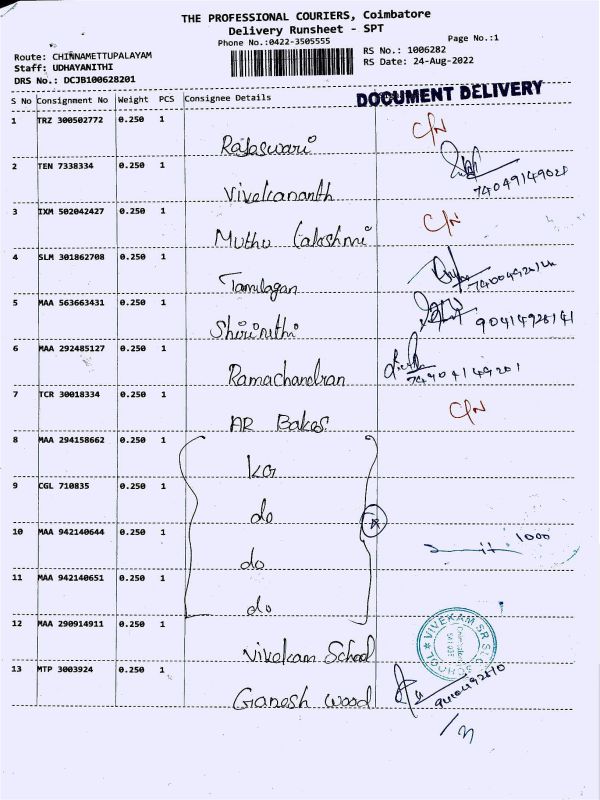 THE PROFESSIONAL COURIERS, Coimbatore
Delivery Runsheet - SPT
Phone No.:0422-3505555
Page No.:1
Route: CHINNAMETTUPALAYAM
RS No.: 1006282
Staff: UDHAYANITHI
RS Date: 24-Aug-2022
DRS No.: DCJB100628201
DOCUMENT DELIVERY
S No Consignment No Weight PCS Consignee Details
1 TRZ 300502772 0.250 1
Rajaswari C/N
2 TEN 7338334 0.250 1
Vivekananth
3 IXM 502042427 0.250 1
Muthu Lakshmi C/N
4 SLM 301862708 0.250 1
Tamilagan
5 MAA 563663431 0.250 1
90414928141
6 MAA 292485127 0.250 1
Ramachandran
7 TCR 30018334 0.250 1
AR Bakes C/N
8 MAA 294158662 0.250 1
KG
9 CGL 710835 0.250 1
do
10 MAA 942140644 0.250 1
1000
do
11 MAA 942140651 0.250 1
do
12 MAA 290914911 0.250 1
Vivekam School
VIVEKAM SR SEC SCHOOL
13 MTP 3003924 0.250 1
Ganesh wood